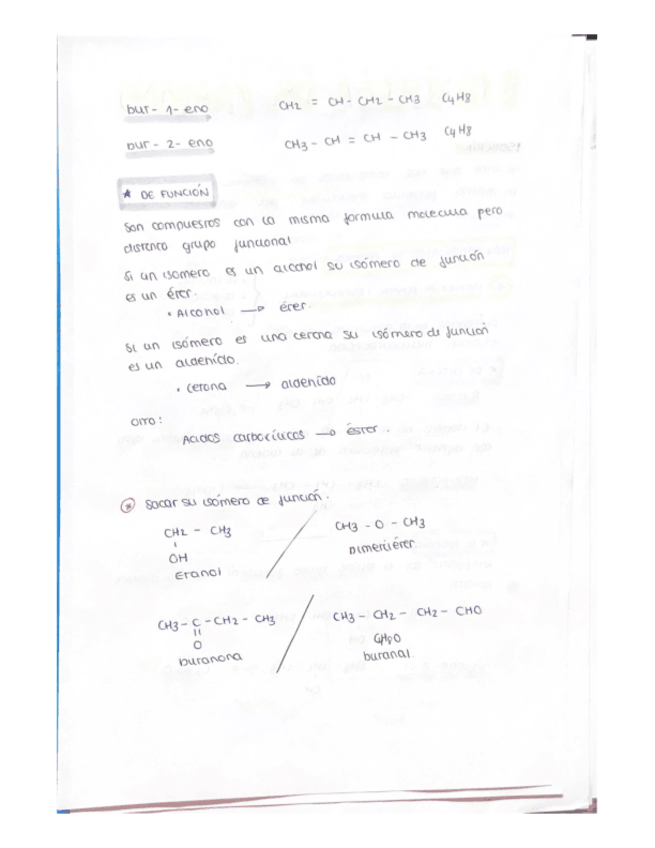 but-1-eno CH2 = CH - CH2 - CH3 C4H8
but-2-eno CH3 - CH = CH - CH3 C4H8
* DE FUNCIÓN
Son compuestos con la misma formula molecula pero
distinto grupo funcional
Si un isomero es un alcohol su isómero de función
es un éter.
• Alcohol → éter.
Si un isómero es una cetona su isómero de función
es un aldehído.
• cetona → aldehído
otro:
Acidos carboxílicos → éster.
* Sacar su isómero de función.
CH2 - CH3 / CH3 - O - CH3
OH Dimetiléter
Etanol
CH3 - C - CH2 - CH3 / CH3 - CH2 - CH2 - CHO
O C4H8O
butanona butanal.